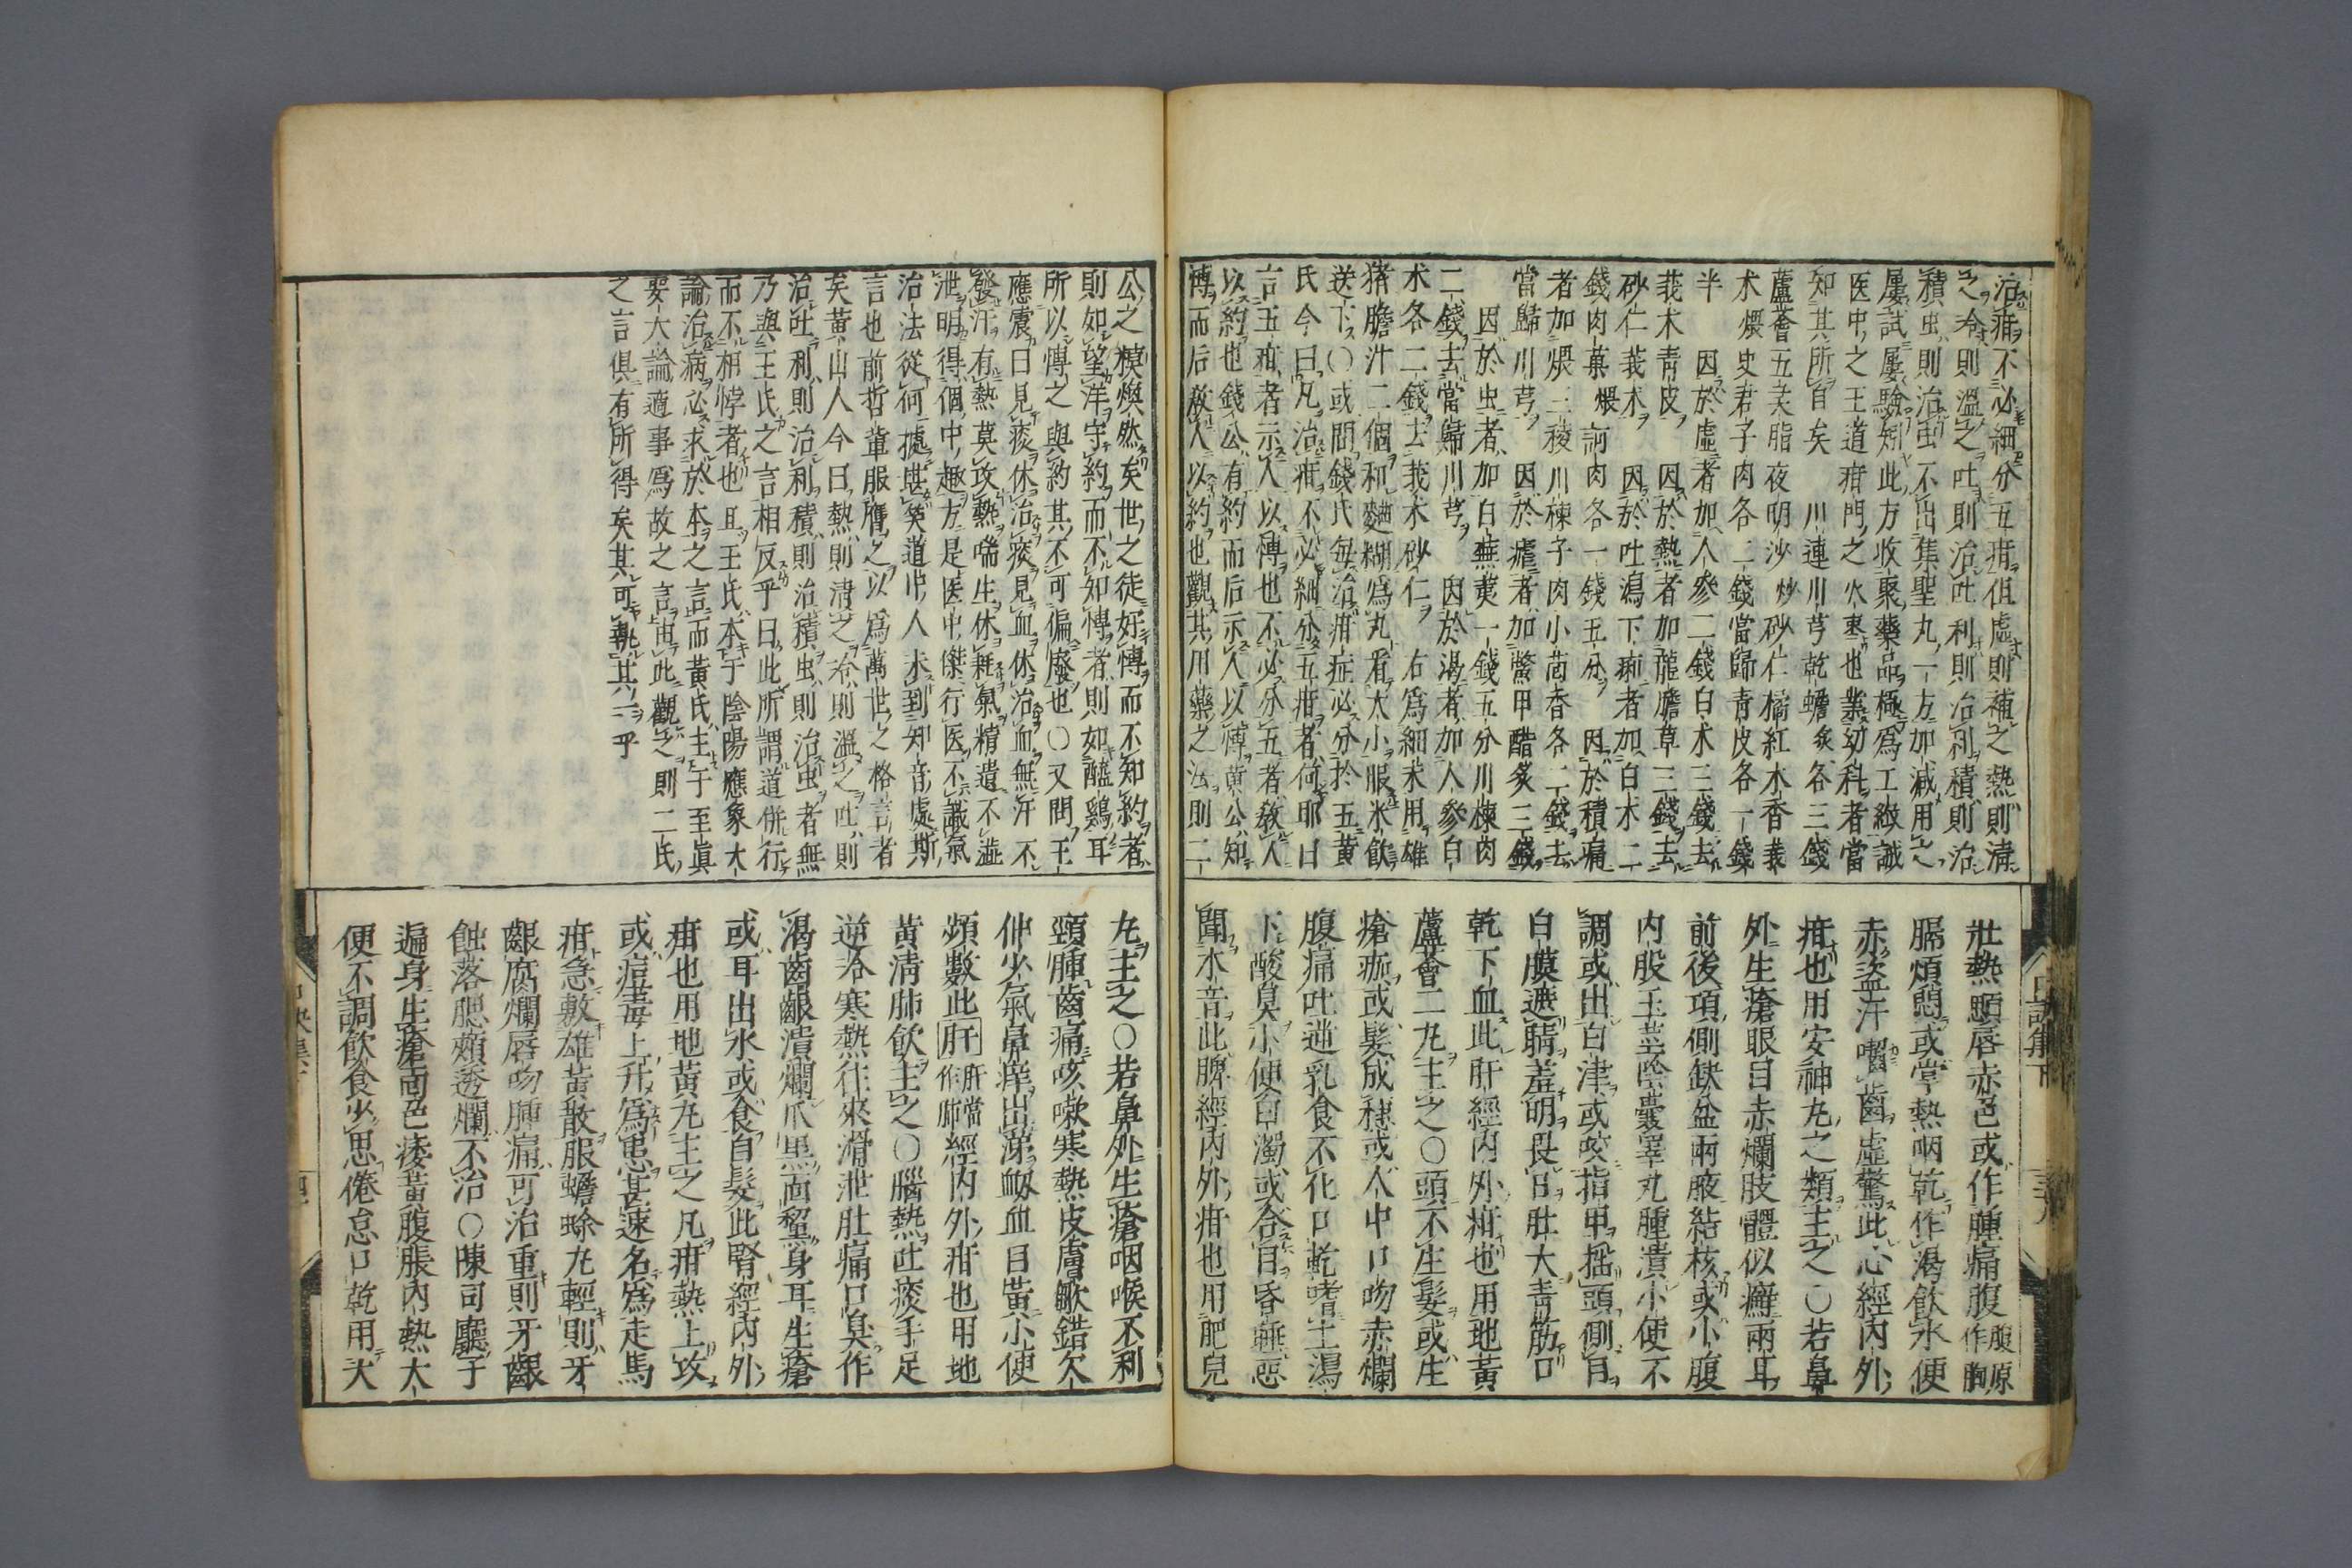 治疳不必細分五疳但虛則補之熱則清
之冷則溫之吐則治吐利則治利積則治
積虫則治虫不出集聖丸一方加減用之
屢試屢驗矧此方收聚藥品極爲工緻誠
医中之王道疳門之火棗也業幼科者當
知其所自矣　川連川芎乾蟾炙各三錢
蘆薈五灵脂夜明沙炒砂仁橘紅木香莪
朮煨史君子肉各二錢當歸青皮各一錢
半　因於虛者加人參二錢白朮三錢去
莪朮青皮　因於熱者加龍膽草三錢去
砂仁莪朮　因於吐瀉下痢者加白朮二
錢肉菓煨訶肉各一錢五分　因於積痛
者加煨三稜川楝子肉小茴香各二錢去
當歸川芎　因於瘧者加鱉甲醋炙三錢
因於虫者加白蕪夷一錢五分川楝肉
二錢去當歸川芎　因於渴者加人參白
朮各二錢去莪朮砂仁　右爲細末用雄
猪膽汁二個和麵糊爲丸看大小服米飲
送下〇或問錢氏每治疳症必分於五黃
氏今曰凡治疳不必細分五疳者何耶曰
言五疳者示人以博也不必分五者教人
以約也錢公有約而后示人以博黃公知
博而后教人以約也觀其用藥之法則二
壯熱顋唇赤色或作腫痛腹腹原作胸
膈煩悶或掌熱咽乾作渴飲水便
赤盜汗嚙齒虛驚此心經內外
疳也用安神丸之類主之〇若鼻
外生瘡眼目赤爛肢體似癬兩耳
前後項側缺盆兩腋結核或小腹
內股玉莖陰囊睪丸腫潰小便不
調或出白津或咬指甲搖頭側目
白膜遮睛羞明畏日肚大青筋口
乾下血此肝經內外疳也用地黃
蘆薈二丸主之〇頭不生髮或生
瘡痂或髮成穗或人中口吻赤爛
腹痛吐逆乳食不化口乾嗜土瀉
下酸臭小便白濁或合目昏睡惡
聞木音此脾經內外疳也用肥兒
公之模煥然矣世之徒好博而不知約者
則如望洋守約而不知博者則如醯鷄耳
所以博之與約其不可偏廢也〇又問王
應震曰見痰休治痰見血休治血無汗不
發汗有熱莫攻熱喘生休耗氣精遺不澁
泄明得個中趣方是医中傑行医不識氣
治法從何據堪笑道中人未到知音處斯
言也前哲輩服膺之以爲萬世之格言者
矣黃山人今曰熱則清之冷則溫之吐則
治吐利則治利積則治積虫則治虫者無
乃與王氏之言相反乎曰此所謂道併行
而不相悖者也且王氏本于陰陽應象大
論治病必求於本之言而黃氏主于至眞
要大論適事爲故之言由此觀之則二氏
之言俱有所得矣其可執其一乎
丸主之〇若鼻外生瘡咽喉不利
頸腫齒痛咳嗽寒熱皮膚皴錯欠
伸少氣鼻痒出涕衂血目黃小便
頻數此肝肝當作肺經內外疳也用地
黃清肺飲主之〇腦熱吐痰手足
逆冷寒熱往來滑泄肚痛口臭作
渴齒齦潰爛爪黑面黧身耳生瘡
或耳出水或食自髮此腎經內外
疳也用地黃丸主之凡疳熱上攻
或痘毒上升爲患甚速名爲走馬
疳急敷雄黃散服蟾蜍丸輕則牙
齦腐爛唇吻腫痛可治重則牙齦
蝕落腮頰透爛不治〇陳司廳子
遍身生瘡面色痿黃腹脹內熱大
便不調飲食少思倦怠口乾用大